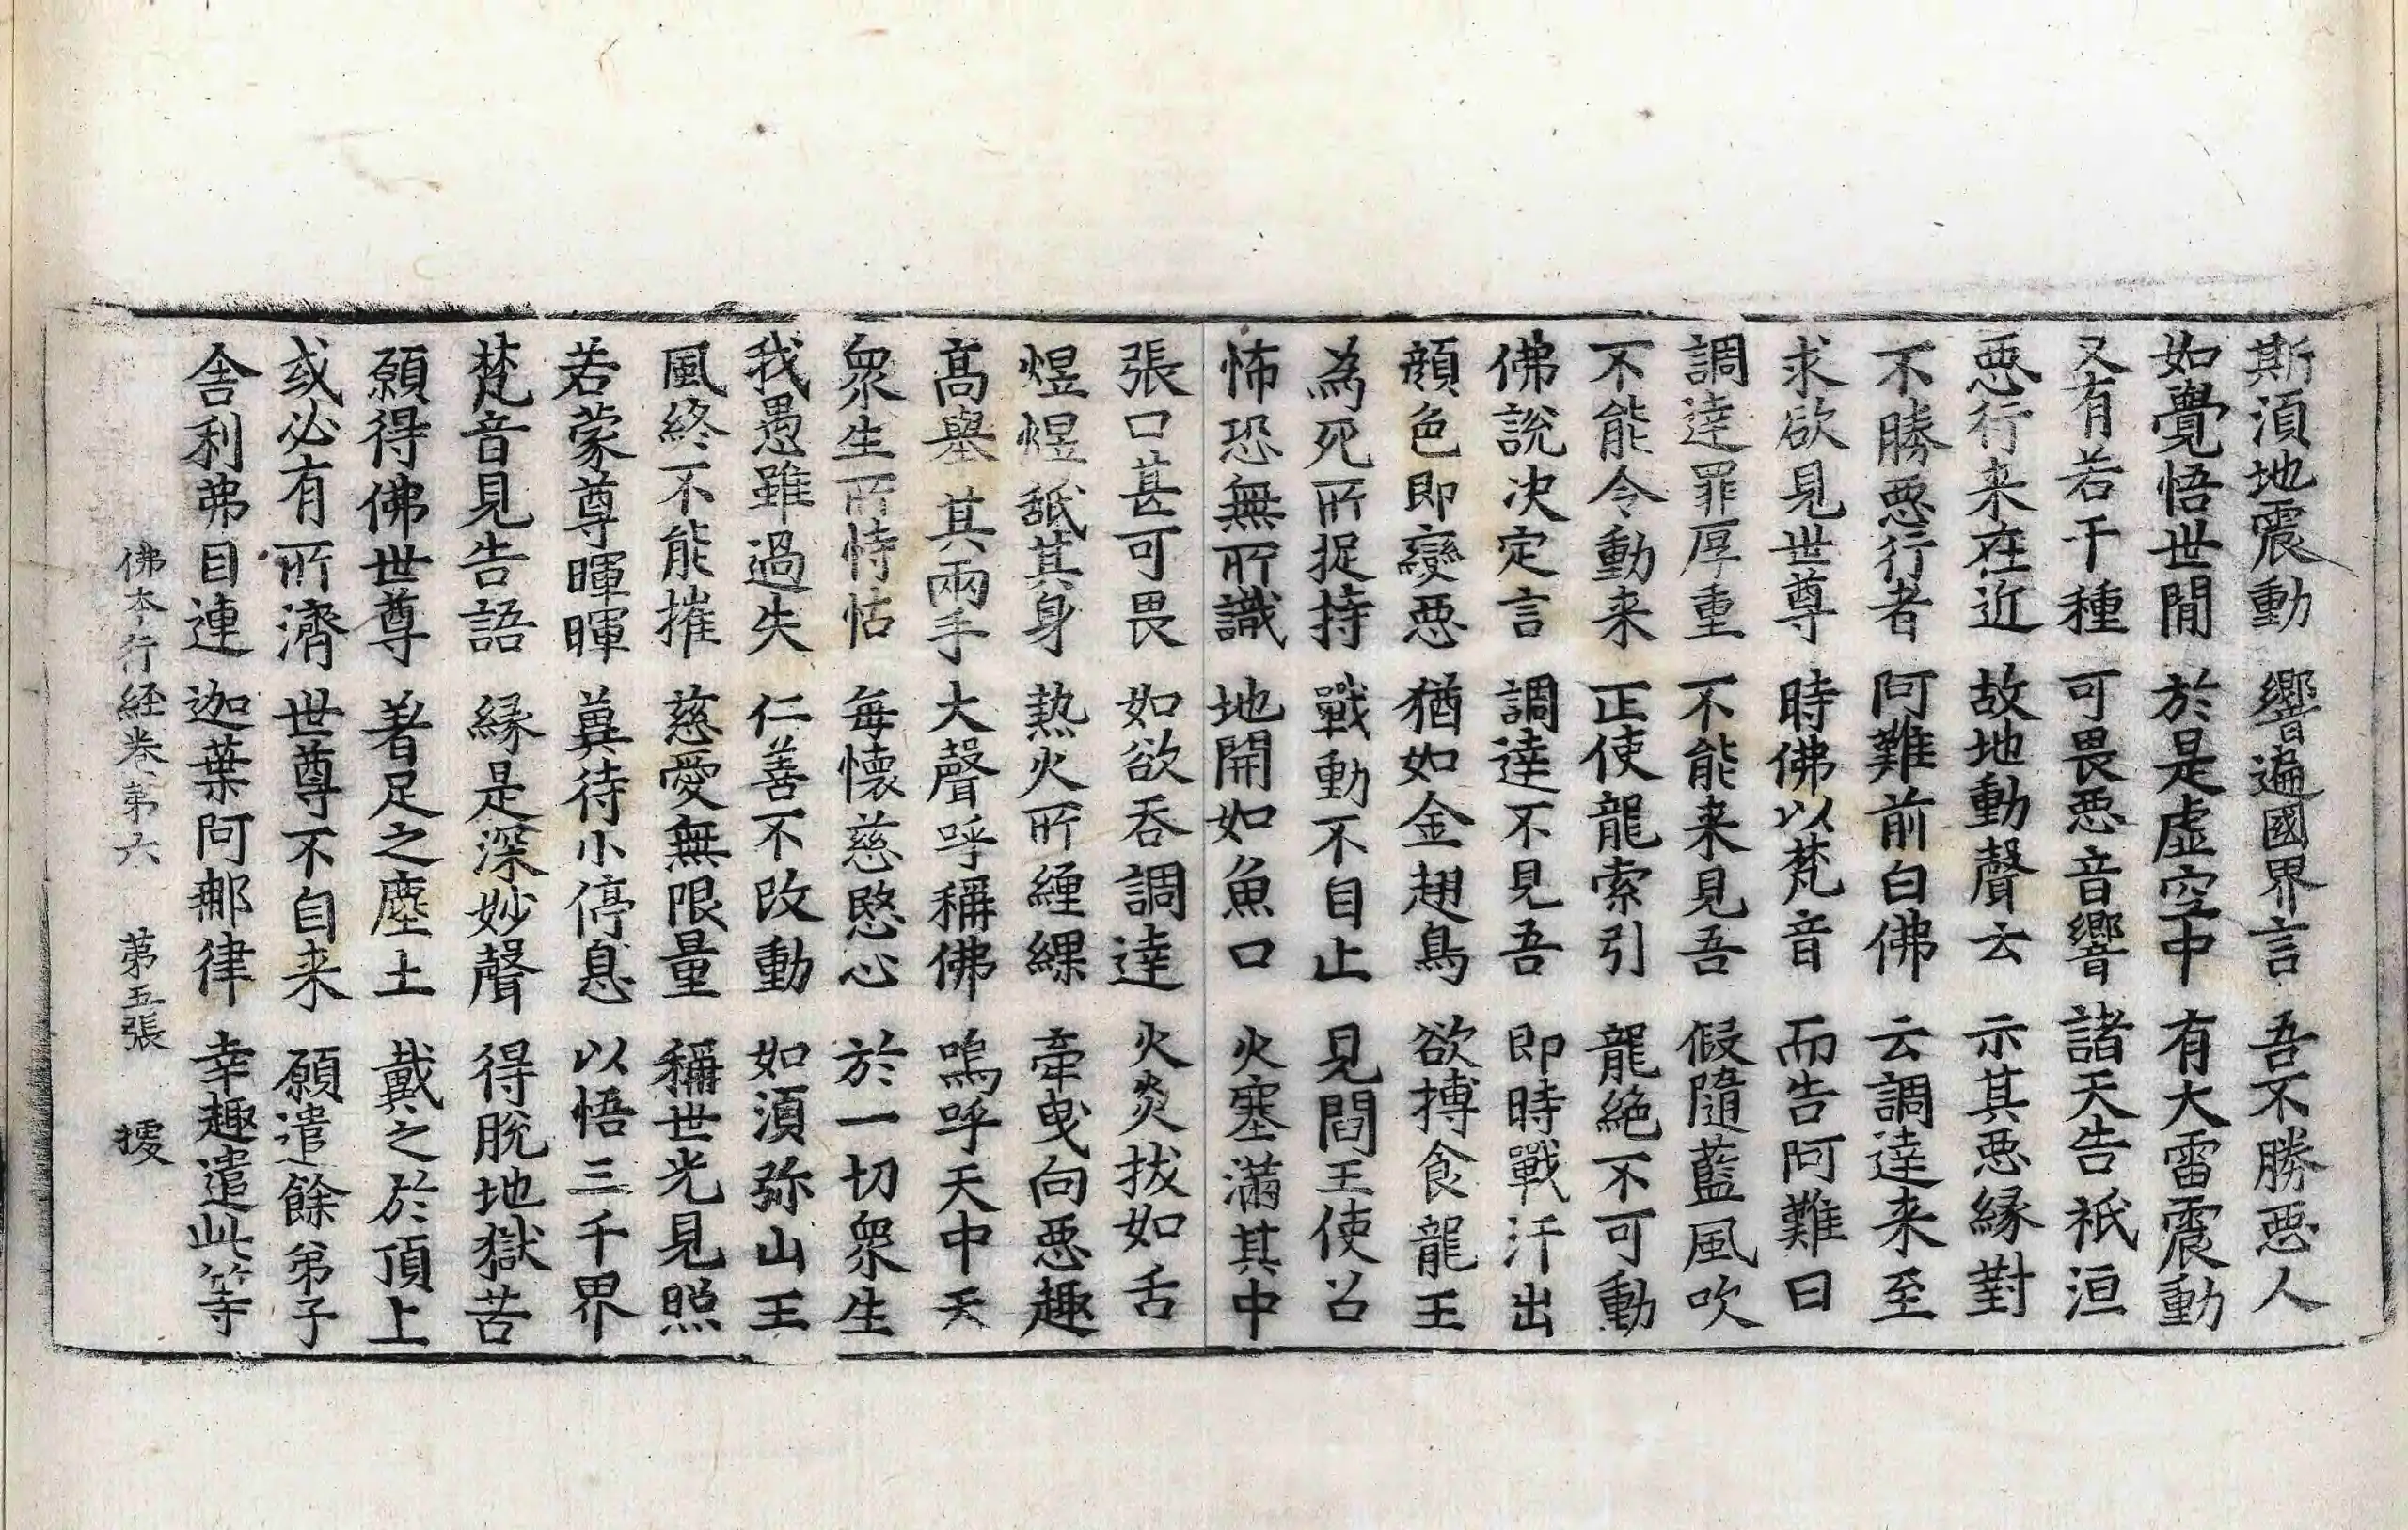 斯湏地震動　響遍國界言　吾不勝惡人
如覺悟世間　於是虛空中　有大雷震動
又有若干種　可畏惡音響　諸天告祇洹
惡行来在近　故地動聲云　示其惡緣對
不勝惡行者　阿難前白佛　云調達来至
求欲見世尊　時佛以梵音　而告阿難曰
調達罪厚重　不能来見吾　假隨藍風吹
不能令動来　正使龍索引　龍絕不可動
佛說决定言　調達不見吾　即時戰汗出
顔色即變惡　猶如金翅鳥　欲搏食龍王
為死所捉持　戰動不自止　見閻王使召
怖恐無所識　地開如魚口　火塞滿其中
張口甚可畏　如欲吞調達　火炎拔如舌
煜煜舐其身　熱火所纏緤　牽曳向惡趣
髙舉其兩手　大聲呼稱佛　嗚呼天中天
衆生所恃怙　每懷慈愍心　於一切衆生
我愚雖過失　仁善不改動　如湏弥山王
風終不能摧　慈愛無限量　稱世光見照
若蒙尊暉暉　冀待小停息　以悟三千界
梵音見告語　緣是深妙聲　得脫地獄苦
願得佛世尊　著足之塵土　戴之於頂上
或必有所濟　世尊不自来　願遣餘弟子
舍利弗目連　迦葉阿那律　幸趣遣此等
佛本行経卷第六　第五張　擾